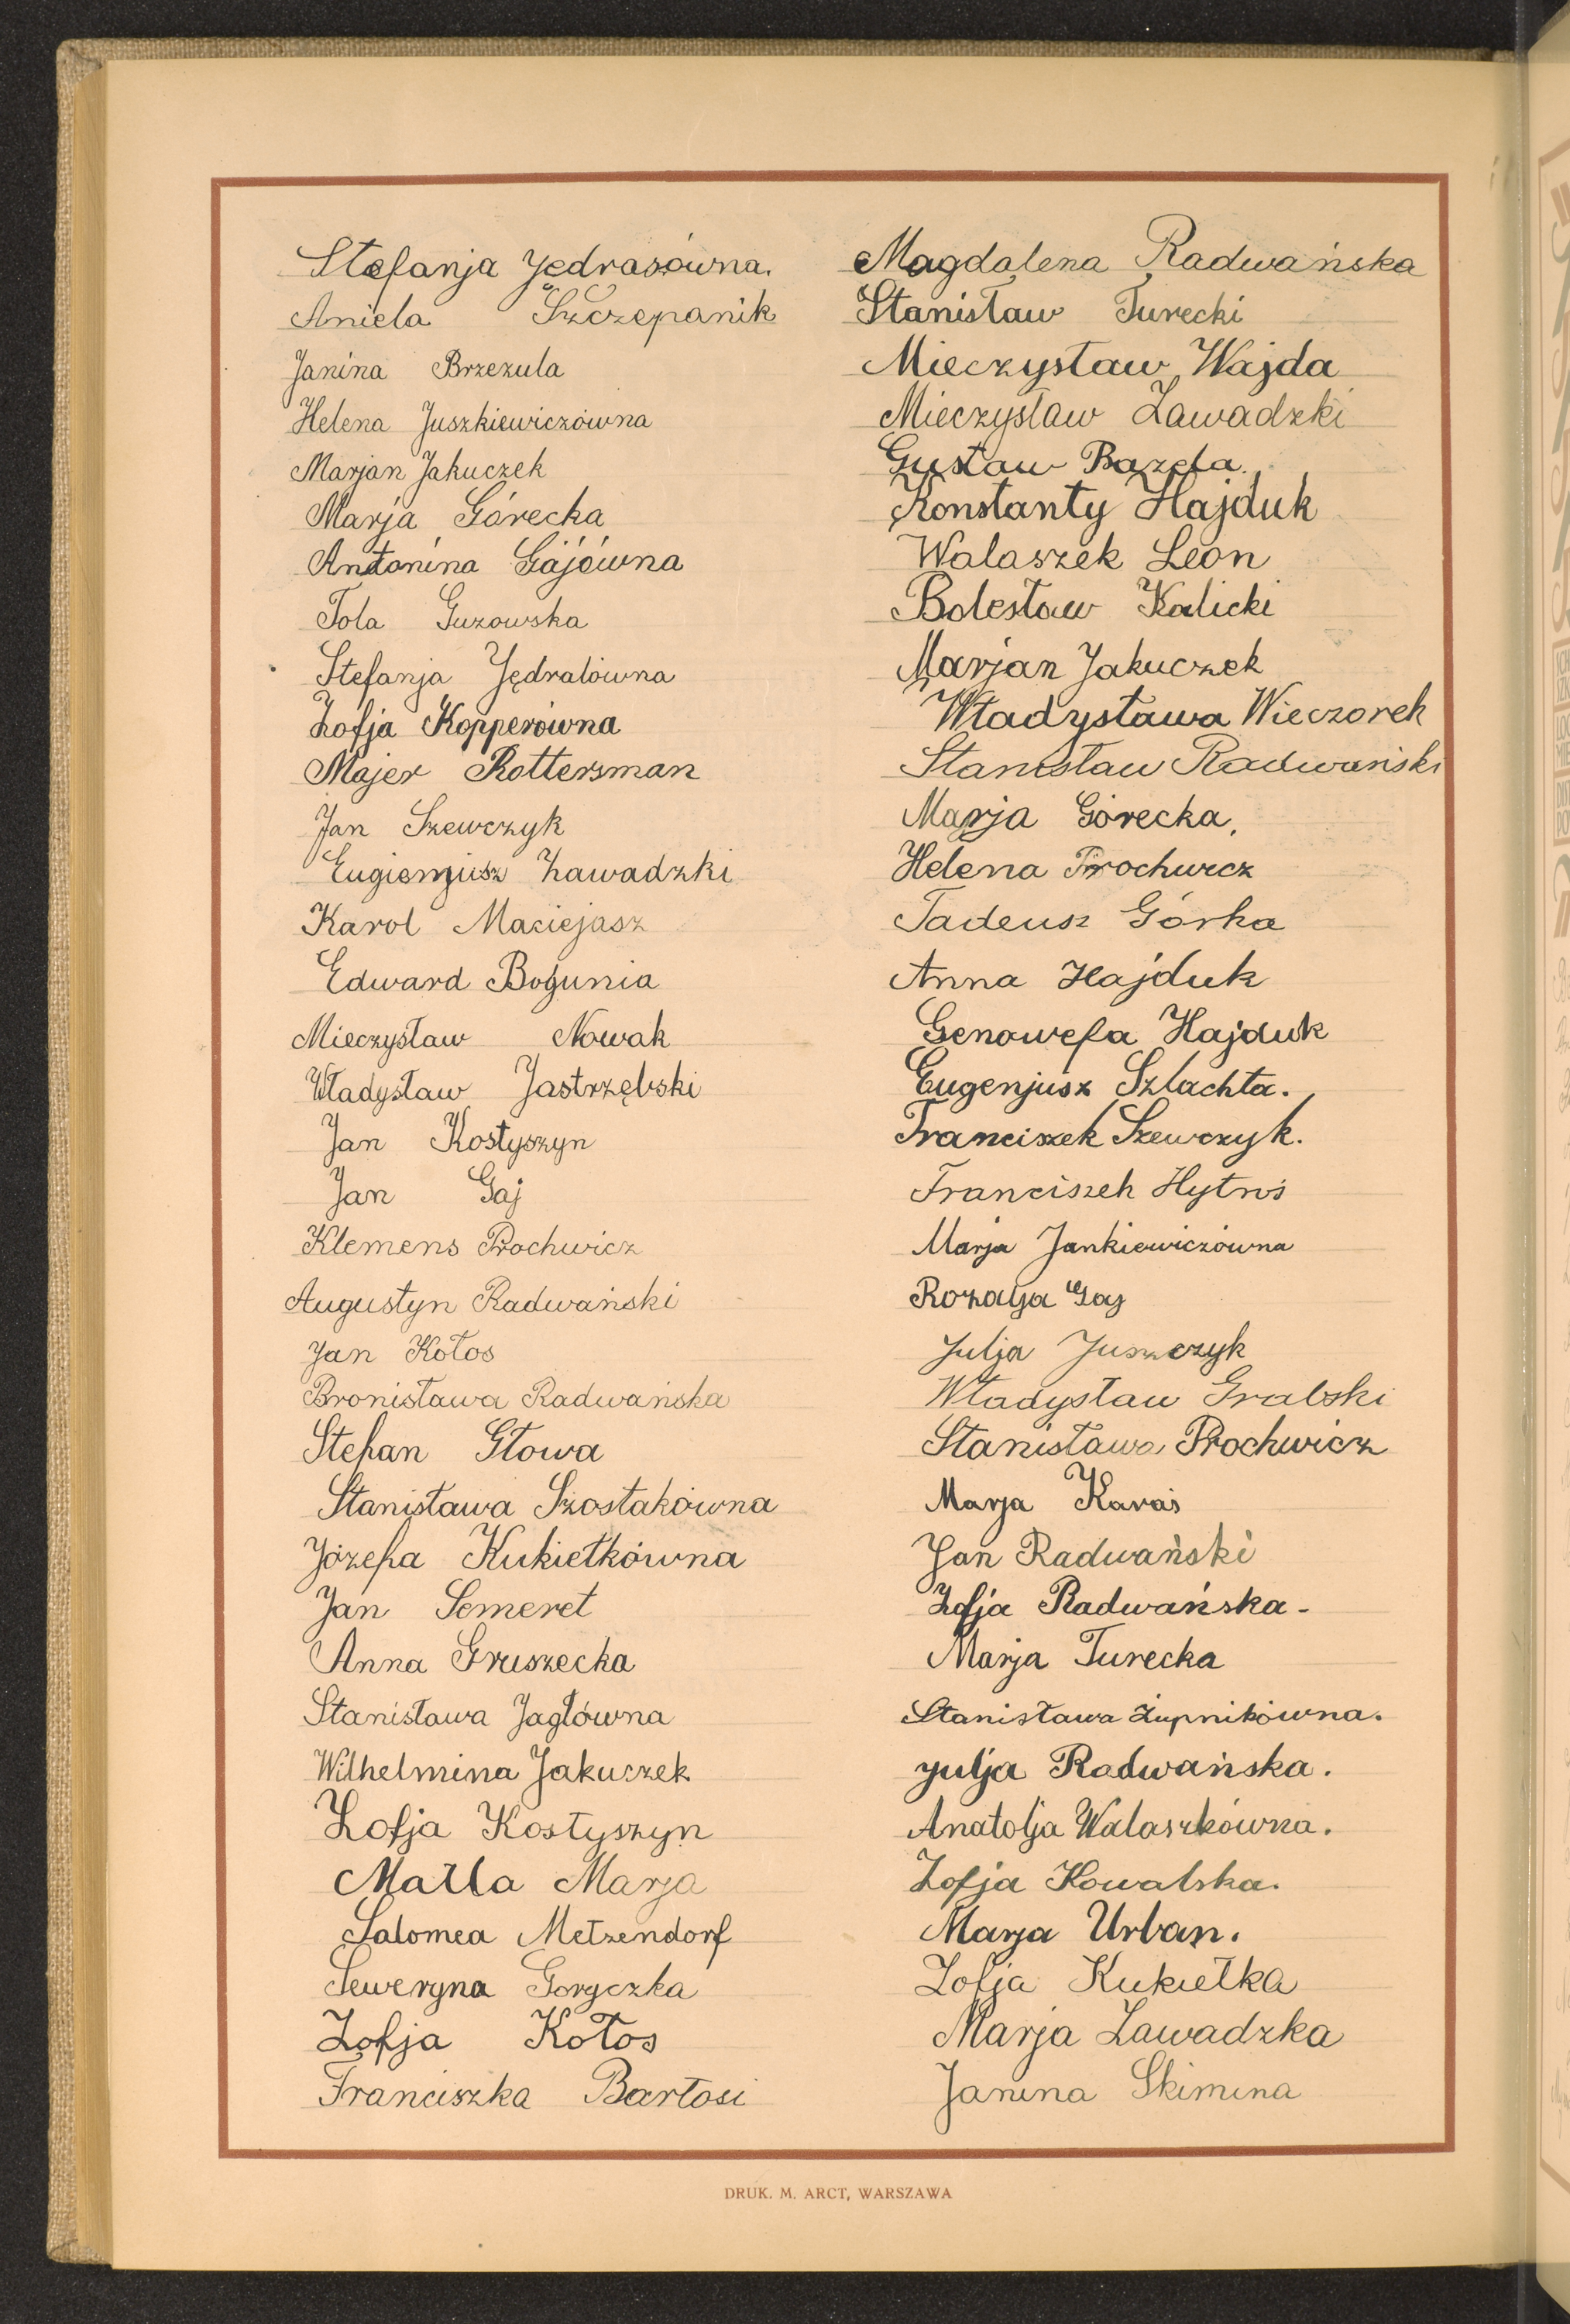 Stefanja Jędrasówna.
Aniela Szczepanik
Janina Brzezula
Helena Juszkiewiczówna
Marjan Jakuczek
Marja Górecka
Antonina Gajówna
Tola Guzowska
Stefanja Jędralówna
Zofja Kopperówna
Majer Rottersman
Jan Szewczyk
Eugienjusz Zawadzki
Karol Maciejasz
Edward Bogunia
Mieczysław Nowak
Władysław Jastrzębski
Jan Kostyszyn
Jan Gaj
Klemens Prochwicz
Augustyn Radwański
Jan Kołos
Bronisława Radwańska
Stefan Głowa
Stanisława Szostakówna
Józefa Kukiełkówna
Jan Semeret
Anna Gruszecka
Stanisława Jaglówna
Wilhelmina Jakuczek
Zofja Kostyszyn
Matla Marja
Salomea Metzendorf
Seweryna Goryczka
Zofja Kołos
Franciszka Bartosi
Magdalena Radwańska
Stanisław Turecki
Mieczysław Wajda
Mieczysław Zawadzki
Gustaw Bazela.
Konstanty Hajduk
Walaszek Leon
Bolesław Kalicki
Marjan Jakuczek
Władysława Wieczorek
Stanisław Radwański
Marja Górecka,
Helena Prochwicz
Tadeusz Górka
Anna Hajduk
Genowefa Hajduk
Eugenjusz Szlachta.
Franciszek Szewczyk.
Franciszek Hytroś
Marja Jankiewiczówna
Rozalja Gaj
Julja Juszczyk
Władysław Grabski
Stanisława Prochwicz
Marja Karaś
Jan Radwański
Zofja Radwańska-
Marja Turecka
Stanisława Żupnikówna.
Julja Radwańska.
Anatolja Walaszkówna.
Zofja Kowalska.
Marja Urban.
Zofja Kukiełka
Marja Zawadzka
Janina Skimina
DRUK. M. ARCT, WARSZAWA